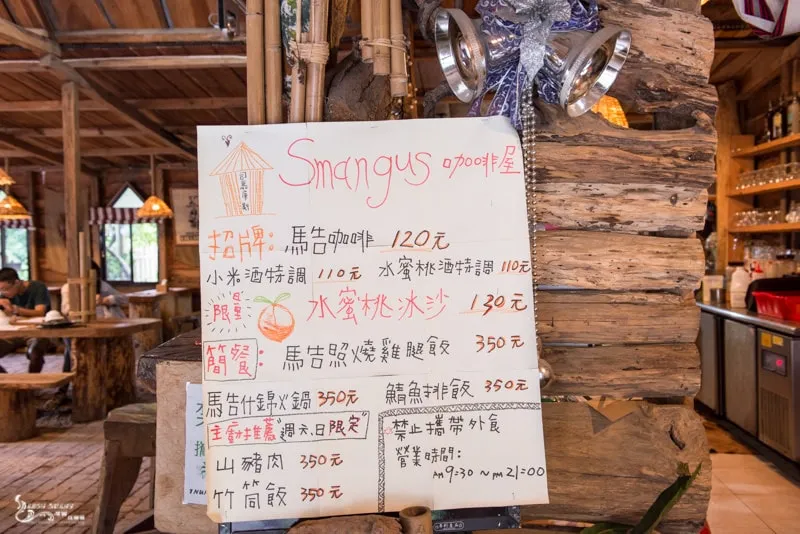 Smangus 咖啡屋
司馬庫斯
招牌: 馬告咖啡 120元
小米酒特調 110元 水蜜桃酒特調 110元
限量 水蜜桃冰沙 130元
簡餐: 馬告照燒雞腿飯 350元
馬告什錦火鍋 350元 鯖魚排飯 350元
主廚推薦 週六、日限定
山豬肉 350元
竹筒飯 350元
禁止攜帶外食
營業時間:
AM 9:30 ~ PM 21:00